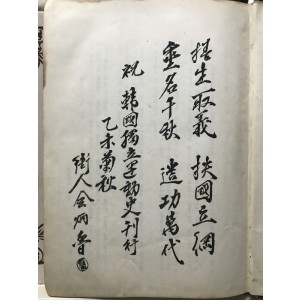 捨生取義 扶國立綱
垂名千秋 造功萬代
祝 韓國獨立運動史刊行
乙未菊秋
街人金炳魯